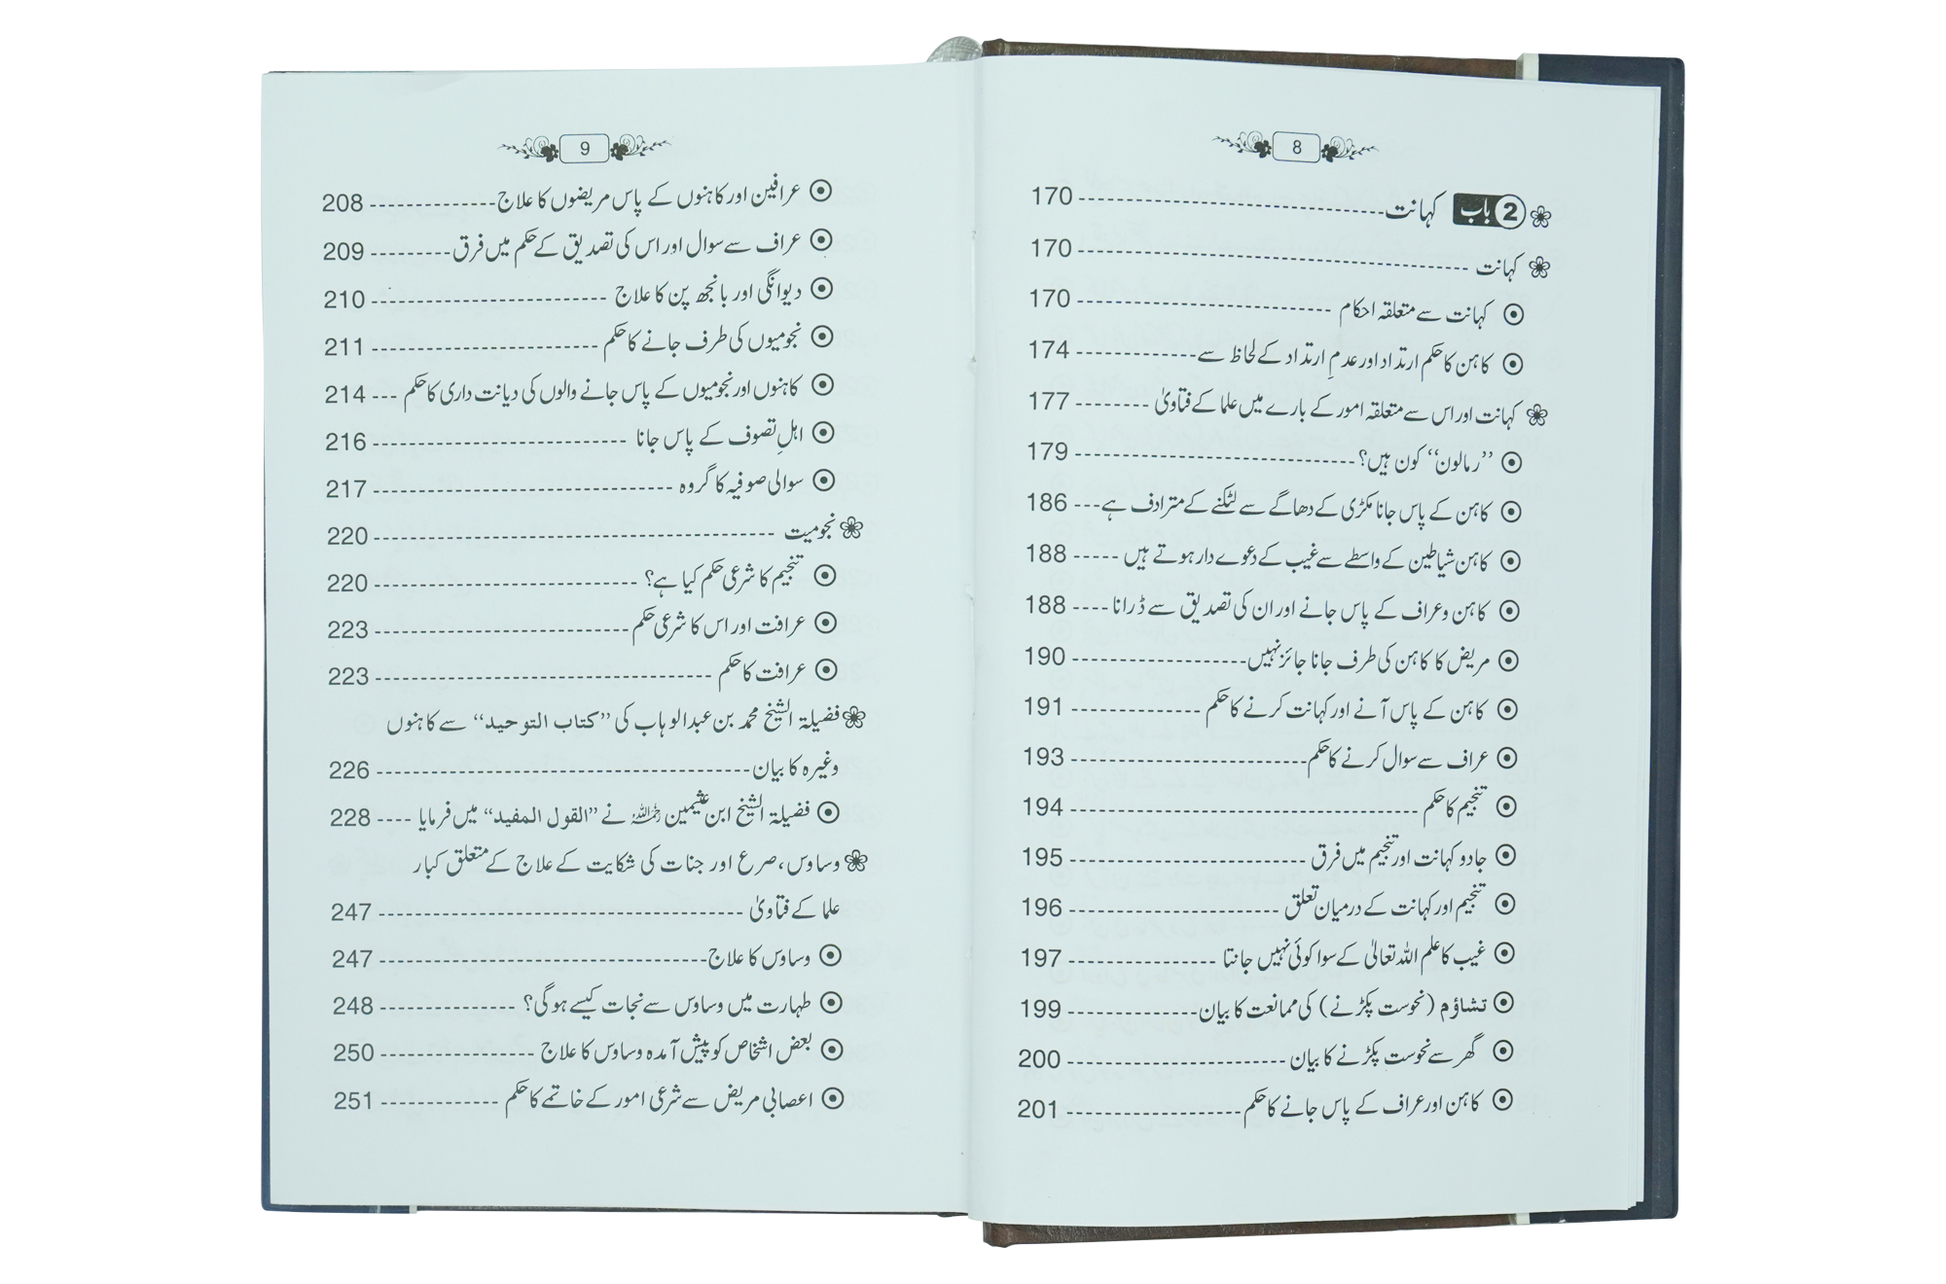 8
باب 2 کہانت 170
کہانت 170
کہانت سے متعلقہ احکام 170
کاہن کا حکم ارتداد اور عدمِ ارتداد کے لحاظ سے 174
کہانت اور اس سے متعلقہ امور کے بارے میں علما کے فتاویٰ 177
”رمالون“ کون ہیں؟ 179
کاہن کے پاس جانا مکڑی کے دھاگے سے لٹکنے کے مترادف ہے 186
کاہن شیاطین کے واسطے سے غیب کے دعوے دار ہوتے ہیں 188
کاہن و عراف کے پاس جانے اور ان کی تصدیق سے ڈرانا 188
مریض کا کاہن کی طرف جانا جائز نہیں 190
کاہن کے پاس آنے اور کہانت کرنے کا حکم 191
عراف سے سوال کرنے کا حکم 193
تنجیم کا حکم 194
جادو کہانت اور تنجیم میں فرق 195
تنجیم اور کہانت کے درمیان تعلق 196
غیب کا علم اللہ تعالیٰ کے سوا کوئی نہیں جانتا 197
تشاؤم (نحوست پکڑنے) کی ممانعت کا بیان 199
گھر سے نحوست پکڑنے کا بیان 200
کاہن اور عراف کے پاس جانے کا حکم 201
9
عرافین اور کاہنوں کے پاس مریضوں کا علاج 208
عراف سے سوال اور اس کی تصدیق کے حکم میں فرق 209
دیوانگی اور بانجھ پن کا علاج 210
نجومیوں کی طرف جانے کا حکم 211
کاہنوں اور نجومیوں کے پاس جانے والوں کی دیانت داری کا حکم 214
اہلِ تصوف کے پاس جانا 216
سوالی صوفیہ کا گروہ 217
نجومیت 220
تنجیم کا شرعی حکم کیا ہے؟ 220
عرافت اور اس کا شرعی حکم 223
عرافت کا حکم 223
فضیلۃ الشیخ محمد بن عبدالوہاب کی ”کتاب التوحید“ سے کاہنوں
وغیرہ کا بیان 226
فضیلۃ الشیخ ابن عثیمین رحمہ اللہ نے ”القول المفید“ میں فرمایا 228
وساوس، صرع اور جنات کی شکایت کے علاج کے متعلق کبار
علما کے فتاویٰ 247
وساوس کا علاج 247
طہارت میں وساوس سے نجات کیسے ہوگی؟ 248
بعض اشخاص کو پیش آمدہ وساوس کا علاج 250
اعصابی مریض سے شرعی امور کے خاتمے کا حکم 251